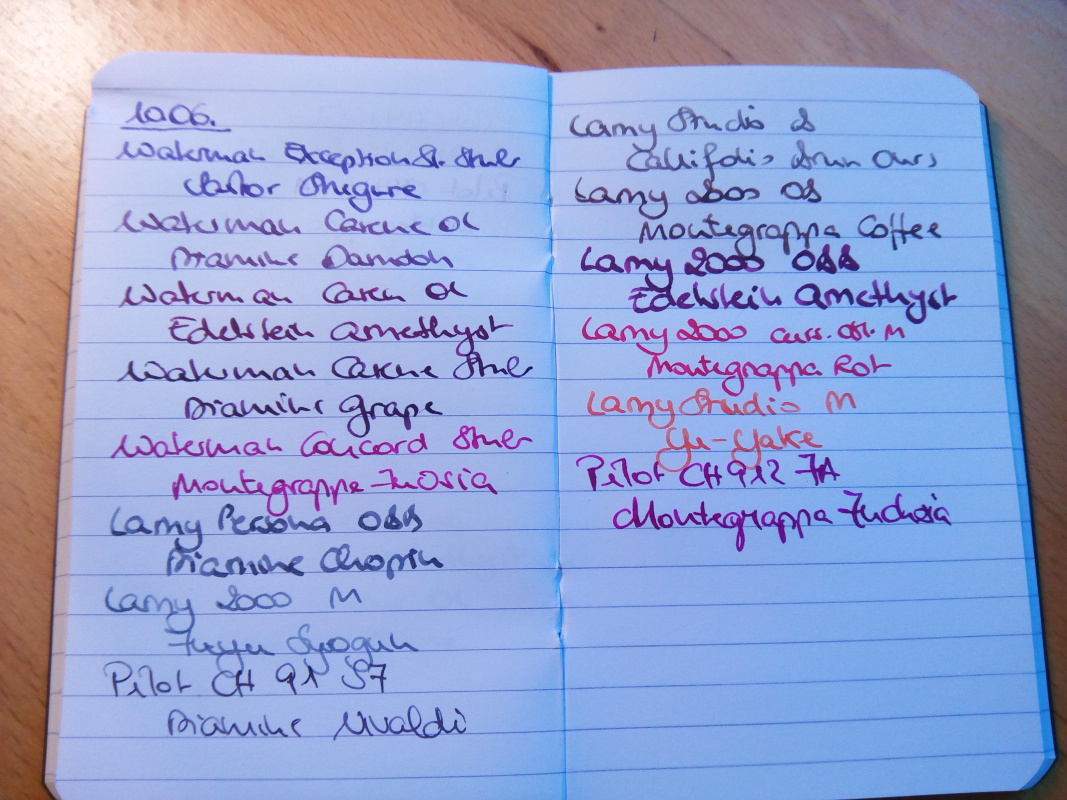 10.06.
Waterman Exception St. Stub
Sailor Shigure
Waterman Carene OM
Diamine Damson
Waterman Carene OM
Edelstein Amethyst
Waterman Carene Stub
Diamine Grape
Waterman Concord Stub
Montegrappa Fuchsia
Lamy Persona OBB
Diamine Chopin
Lamy 2000 M
Fuyu Syogun
Pilot CH 91 SF
Diamine Vivaldi
Lamy Studio B
Callifolio Brun Ours
Lamy 2000 OB
Montegrappa Coffee
Lamy 2000 OBB
Edelstein Amethyst
Lamy 2000 M
Montegrappa Rot
Lamy Studio M
Yu-Yake
Pilot CH 912 FA
Montegrappa Fuchsia